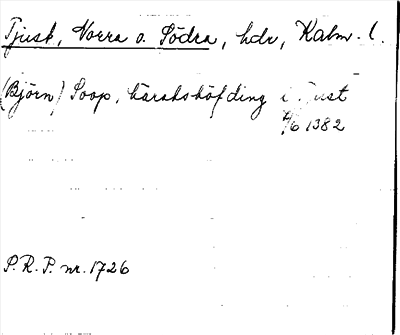 Tjust, Norra o. Södra, hdr, Kalm. l.
(Björn) Soop, häradshöfding i Tjust
4/6 1382
P.R.P. nr. 1726